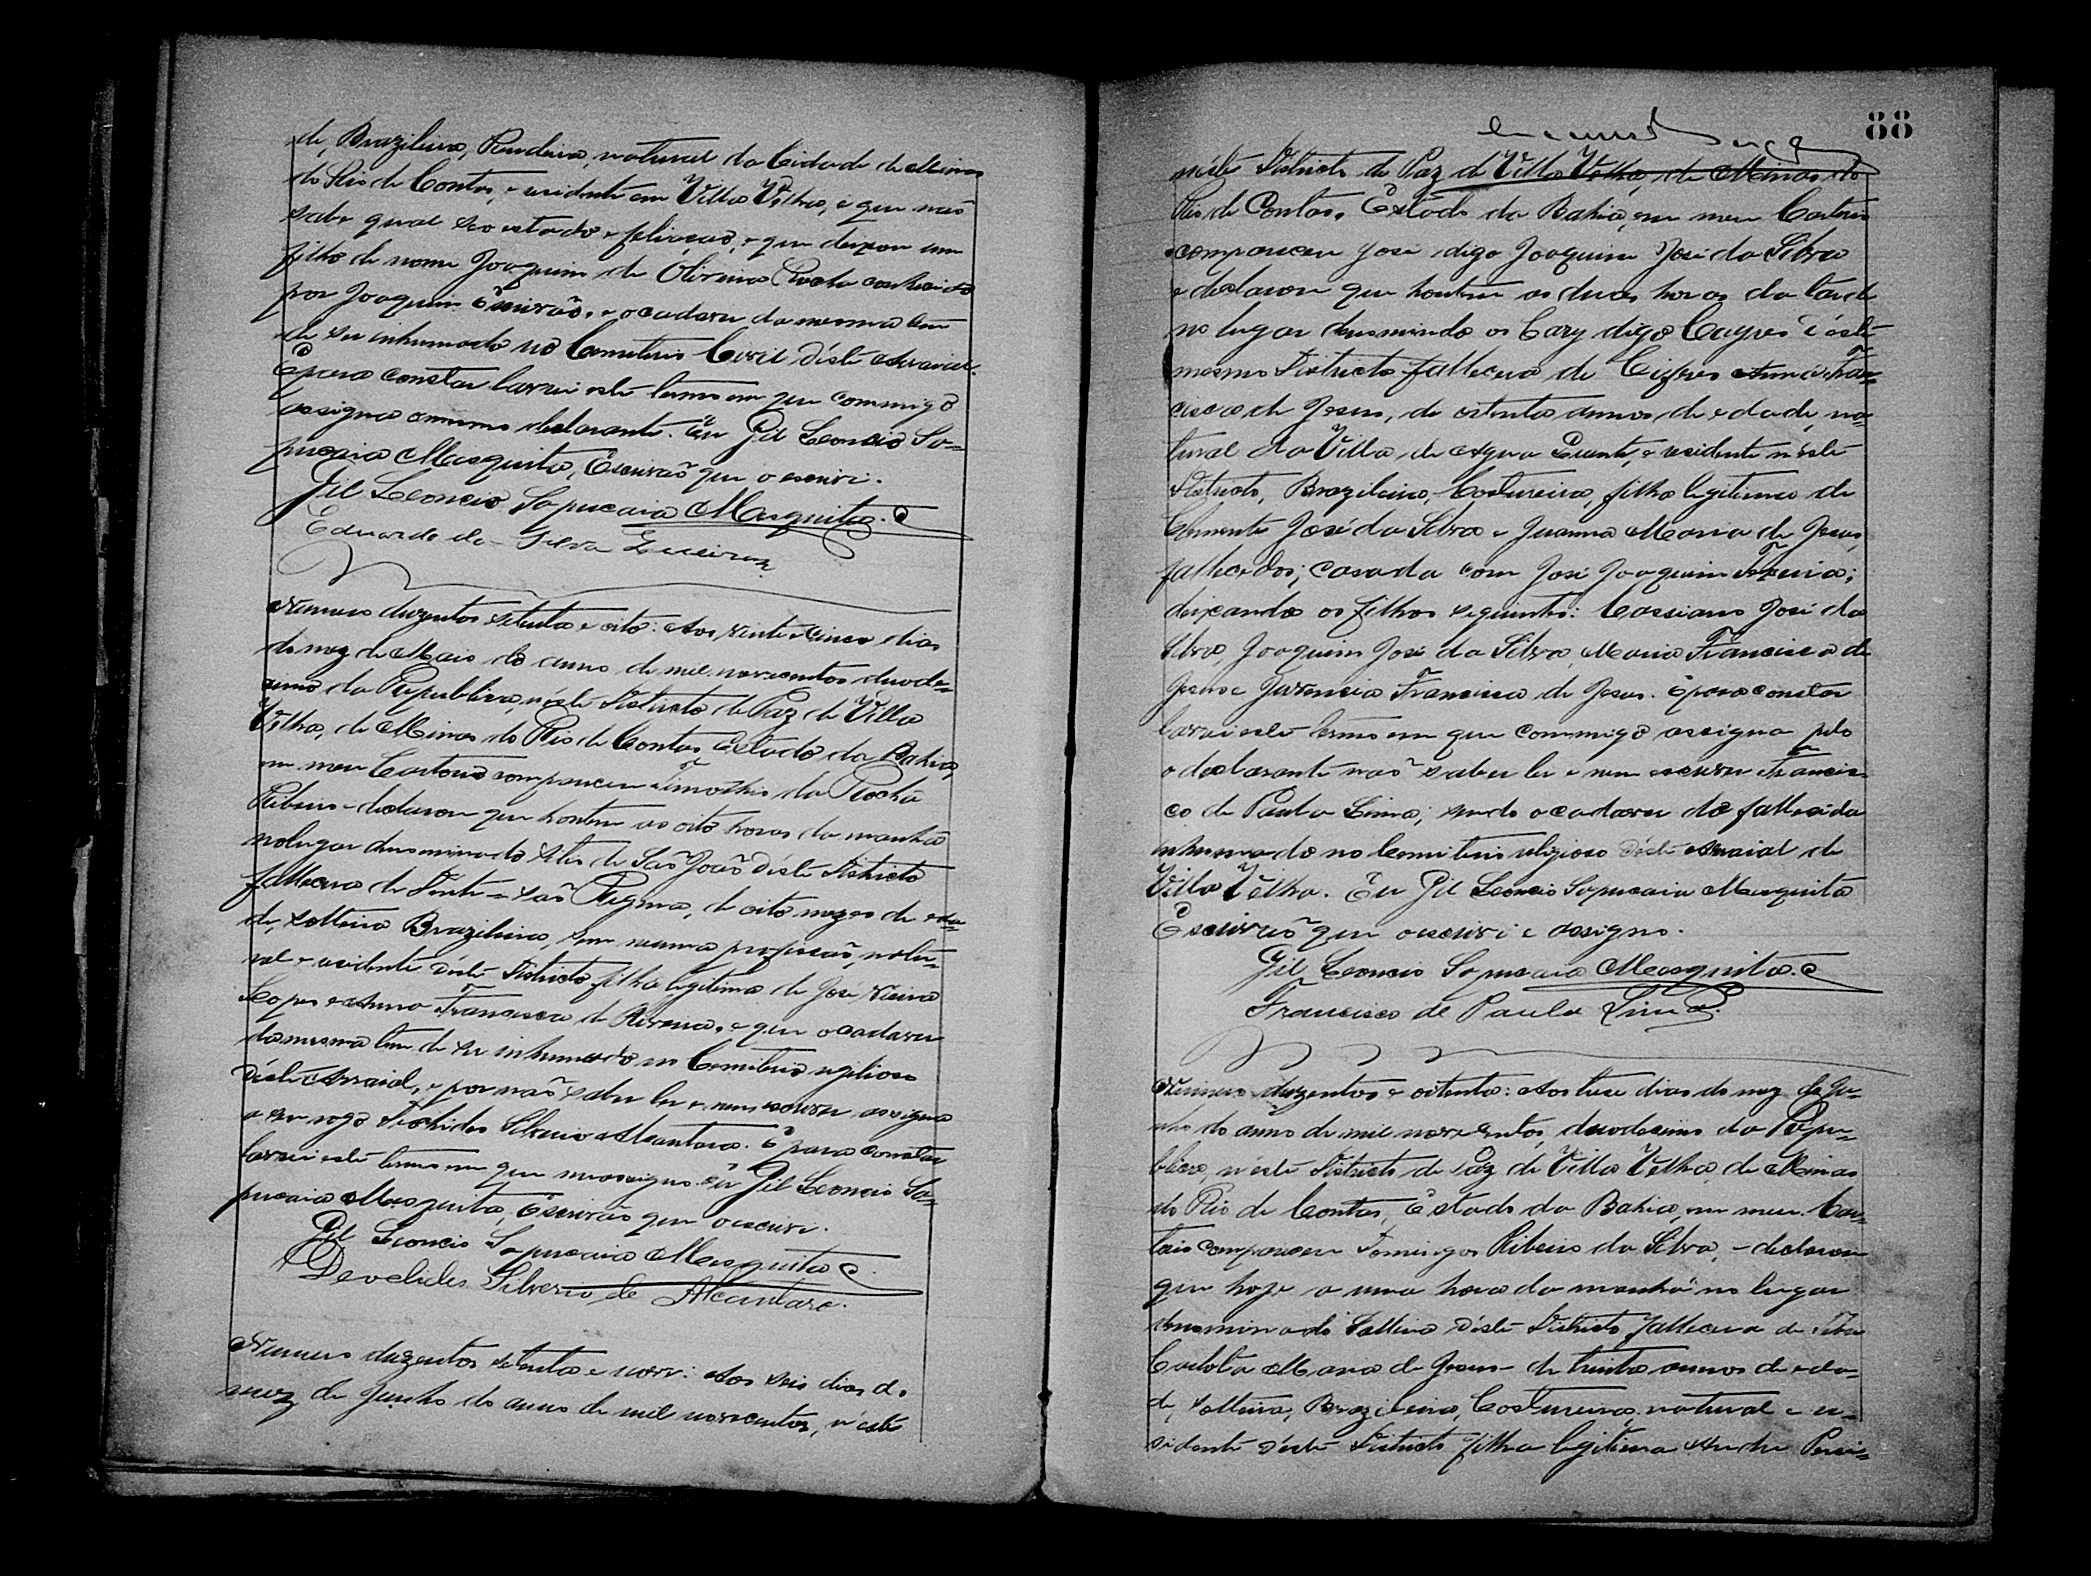 de, Brazileira, Rendeira, natural da Cidade de Minas
do Rio de Contas, e residente em Villa Velha, e que não
sabe qual seo estado e feliação, e que deixou um
filho de nome Joaquim de Oliveira Rocha conhecido
por Joaquim Escrivão, e o cadaver da mesma tem
de ser inhumado no Cemiterio Civil d'éste Arraial.
E para constar lavrei este termo em que commigo
assigna o mesmo declarante. Eu Gil Leoncio Sa=
pucaia Mesquita, Escrivão que o escrivi.
Gil Leoncio Sapucaia Mesquita.
Eduardo da Silva
Numero duzentos setenta e oito: Aos vinte e cinco dias
do mez de Maio do anno de mil novecentos duode=
cimo da Republica, n'éste Districto de Paz de Villa
Velha, de Minas do Rio de Contas Estado da Bahia,
em meu Cartorio compareceu Timotheo da Rocha
Ribeiro e declarou que hontem as oito horas da manhã
no lugar denominado Sitio de São João d'éste Districto
fallecera de Dentição Regina, de oito mezes de eda=
de, solteira Brazileira, sem nenuma profissão, natu=
ral e residente d'éste Districto, filha legitima de José Vieira
Lopes e Anna Francisca de , e que o cadaver
da mesma tem de ser inhumado no Cemiterio religioso
d'éste Arraial, e por não saber ler e nem escrever assigna
a seu rogo Silverio Alcantara. E para constar
lavrei este termo em que me assigno. Eu Gil Leoncio Sa=
pucaia Mesquita, Escrivão que o escrivi.
Gil Leoncio Sapucaia Mesquita
Deoclides Silverio de Alcantara.
Numero duzentos setenta e nove: Aos seis dias do
mez de Junho do anno de mil novecentos, n'éste
88
n'éste Districto de Paz de Villa Velha, de Minas do
Rio de Contas, Estado da Bahia, em meu Cartorio
compareceu José digo Joaquim José da Silva
e declarou que hontem as duas horas da tarde
no lugar denominado os Cary digo d'éste
mesmo Districto fallecera de Anna Fran=
cisca de Jesus, de oitenta annos de edade, na=
tural da Villa de Agua Quente, e residente n'éste
Districto, Brazileira, Costureira, filha legitima de
Clemente José da Silva e Juanna Maria de Jesus,
fallecidos; casada com José Joaquim ;
deixando os filhos seguintes: Cassiano José da
Silva, Joaquim José da Silva, Maria Francisca de
Jesus e Juvencia Francisca de Jesus. E para constar
lavrei este termo em que commigo assigna pelo
o declarante não saber ler e nem escrever Francis=
co de Paula Lima; sendo o cadaver da fallecida
inhumado no Cemiterio religioso d'éste Arraial de
Villa Velha. Eu Gil Leoncio Sapucaia Mesquita
Escrivão que o escrivi e assigno.
Gil Leoncio Sapucaia Mesquita.
Francisco de Paula Lima.
Numero duzentos e oitenta: Aos treze dias do mez de Ju=
nho do anno de mil novecentos, duodecimo da Repu=
blica, n'éste Districto de Paz de Villa Velha, de Minas
do Rio de Contas, Estado da Bahia, em meu Car=
torio compareceu Domingos Ribeiro da Silva, e declarou
que hoje a uma hora da manhã no lugar
denominado d'éste Districto fallecera de
Carlota Maria de Jesus de trinta annos de eda=
de, solteira, Brazileira, Costureira, natural e re=
sidente d'éste Districto filha legitima